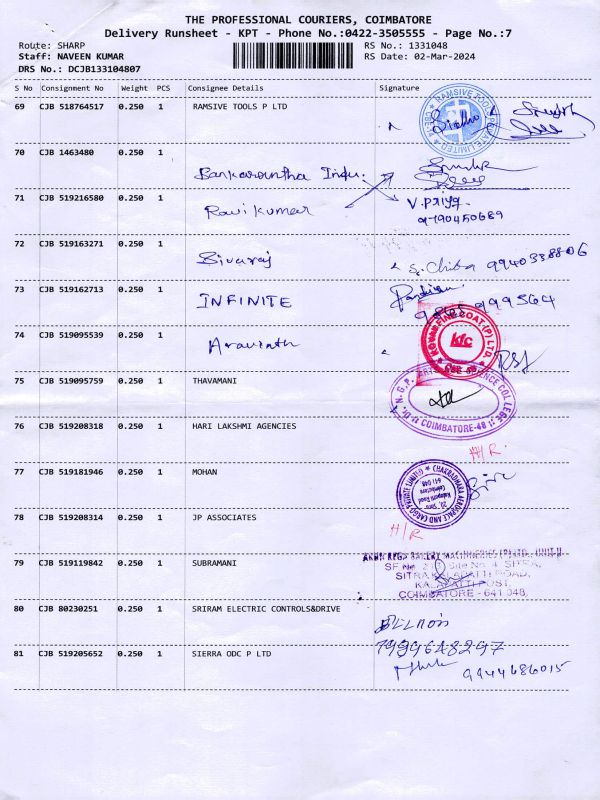 THE PROFESSIONAL COURIERS, COIMBATORE
Delivery Runsheet - KPT - Phone No.:0422-3505555 - Page No.:7
Route: SHARP
RS No.: 1331048
Staff: NAVEEN KUMAR
RS Date: 02-Mar-2024
DRS No.: DCJB133104807
S No Consignment No Weight PCS Consignee Details Signature
69 CJB 518764517 0.250 1 RAMSIVE TOOLS P LTD
RAMSIVE TOOLS PRIVATE LIMITED
70 CJB 1463480 0.250 1
Sankarantha Indu.
71 CJB 519216580 0.250 1
Ravi kumar
V. Priya
9790450689
72 CJB 519163271 0.250 1
Sivaraj
9940338806
73 CJB 519162713 0.250 1
INFINITE
74 CJB 519095539 0.250 1
Aravinth
NOVAA FINE COAT (P) LTD.
kfc
75 CJB 519095759 0.250 1 THAVAMANI
Dr. N. G. P. ARTS AND SCIENCE COLLEGE
COIMBATORE-48
76 CJB 519208318 0.250 1 HARI LAKSHMI AGENCIES
H/R
77 CJB 519181946 0.250 1 MOHAN
CHAKRADHARA AEROSPACE AND CARGO PRIVATE LIMITED
Kalapatti Road
Coimbatore
641 048
78 CJB 519208314 0.250 1 JP ASSOCIATES
H/R
79 CJB 519119842 0.250 1 SUBRAMANI
BAKERY MACHINERIES (P) LTD., UNIT-II
Site No. 4, SITRA,
SITRA KALAPATTI ROAD,
KALAPATTI POST,
COIMBATORE - 641 048.
80 CJB 80230251 0.250 1 SRIRAM ELECTRIC CONTROLS&DRIVE
7999648297
81 CJB 519205652 0.250 1 SIERRA ODC P LTD
9944686015